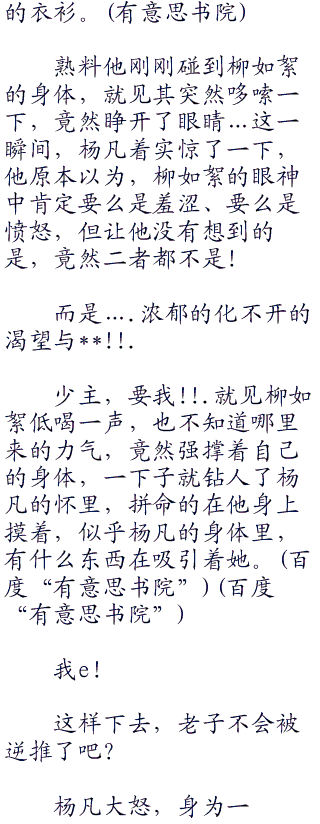 的衣衫。(有意思书院)
熟料他刚刚碰到柳如絮
的身体，就见其突然哆嗦一
下，竟然睁开了眼睛…这一
瞬间，杨凡着实惊了一下，
他原本以为，柳如絮的眼神
中肯定要么是羞涩、要么是
愤怒，但让他没有想到的
是，竟然二者都不是!
而是….浓郁的化不开的
渴望与**!!.
少主，要我!!.就见柳如
絮低喝一声，也不知道哪里
来的力气，竟然强撑着自己
的身体，一下子就钻人了杨
凡的怀里，拼命的在他身上
摸着，似乎杨凡的身体里，
有什么东西在吸引着她。(百
度“有意思书院”)(百度
“有意思书院”)
我e!
这样下去，老子不会被
逆推了吧?
杨凡大怒，身为一